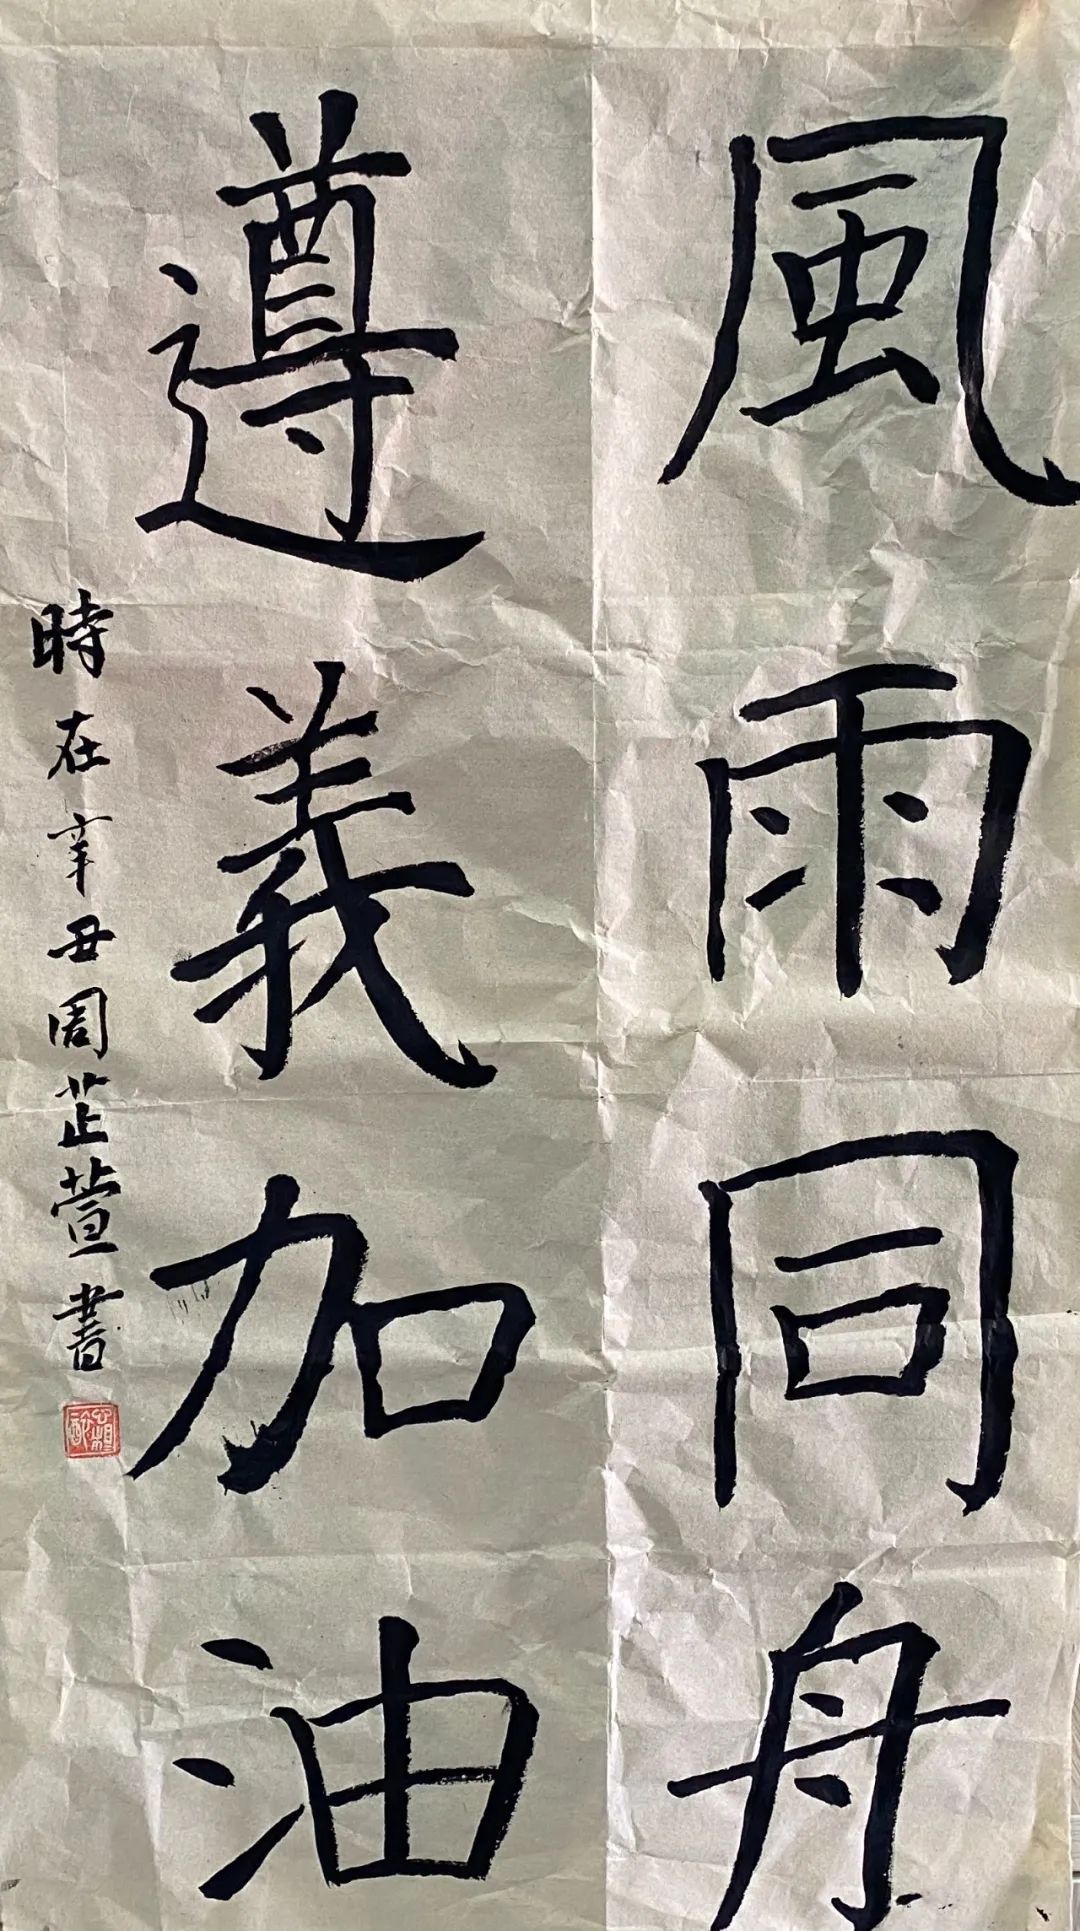 風雨同舟
遵義加油
時在辛丑周芷萱書